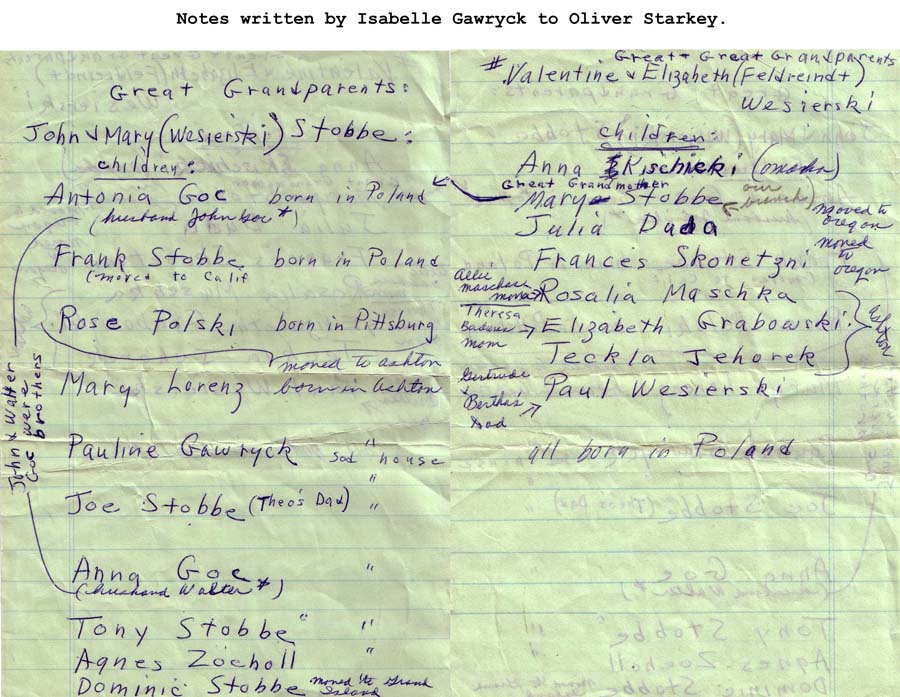 Notes written by Isabelle Gawryck to Oliver Starkey.
Great Grandparents:
John & Mary (Wesierski) Stobbe:
children:
Antonia Goc born in Poland
(husband John Goc *)
Frank Stobbe born in Poland
(moved to Calif
Rose Polski born in Pittsburg
moved to Ashton
Mary Lorenz born in Ashton
Pauline Gawryck sod house
"
Joe Stobbe (Theo's Dad) "
Anna Goc "
(husband Walter *)
Tony Stobbe "
Agnes Zocholl "
Dominic Stobbe moved to Grand
Island
John & Walter
Goc were
brothers
Great + Great Grandparents
# Valentine & Elizabeth (Feldreindt)
Wesierski
children:
Anna Kischicki (Omaha)
Great Grandmother
Mary Stobbe our
branch)
Julia Dada moved to
oregon
Frances Skonetzni moved
to
oregon
Allie
Maschka
mona Rosalia Maschka
Theresa
Badura
mom Elizabeth Grabowski
Teckla Jehorek
Elyton
Gertrude
&
Bertha's
Dad
Paul Wesierski
all born in Poland